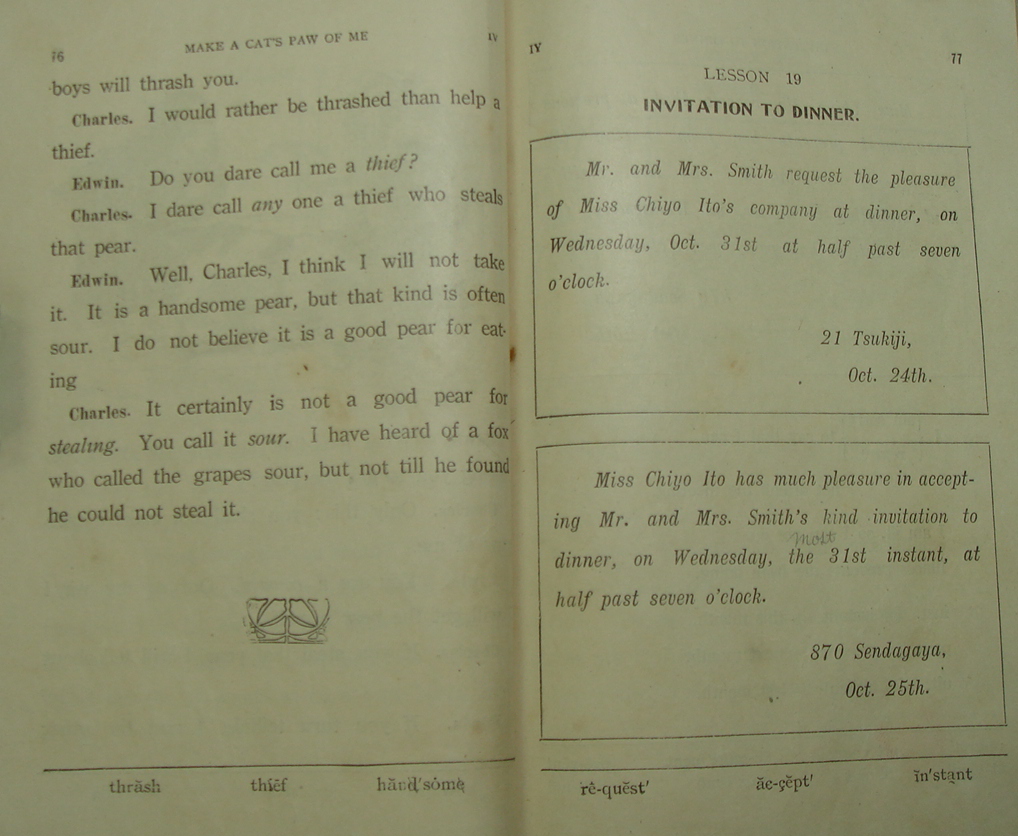 76 MAKE A CAT'S PAW OF ME IV
boys will thrash you.
Charles. I would rather be thrashed than help a
thief.
Edwin. Do you dare call me a thief?
Charles. I dare call any one a thief who steals
that pear.
Edwin. Well, Charles, I think I will not take
it. It is a handsome pear, but that kind is often
sour. I do not believe it is a good pear for eat-
ing
Charles. It certainly is not a good pear for
stealing. You call it sour. I have heard of a fox
who called the grapes sour, but not till he found
he could not steal it.
thrăsh thïēf hănd'sóme
IV 77
LESSON 19
INVITATION TO DINNER.
Mr. and Mrs. Smith request the pleasure
of Miss Chiyo Ito's company at dinner, on
Wednesday, Oct. 31st at half past seven
o'clock.
21 Tsukiji,
Oct. 24th.
Miss Chiyo Ito has much pleasure in accept-
ing Mr. and Mrs. Smith's kind invitation to
dinner, on Wednesday, the 31st instant, at
half past seven o'clock.
870 Sendagaya,
Oct. 25th.
rê-quĕst' ăc-çĕpt' ĭn'stạnt